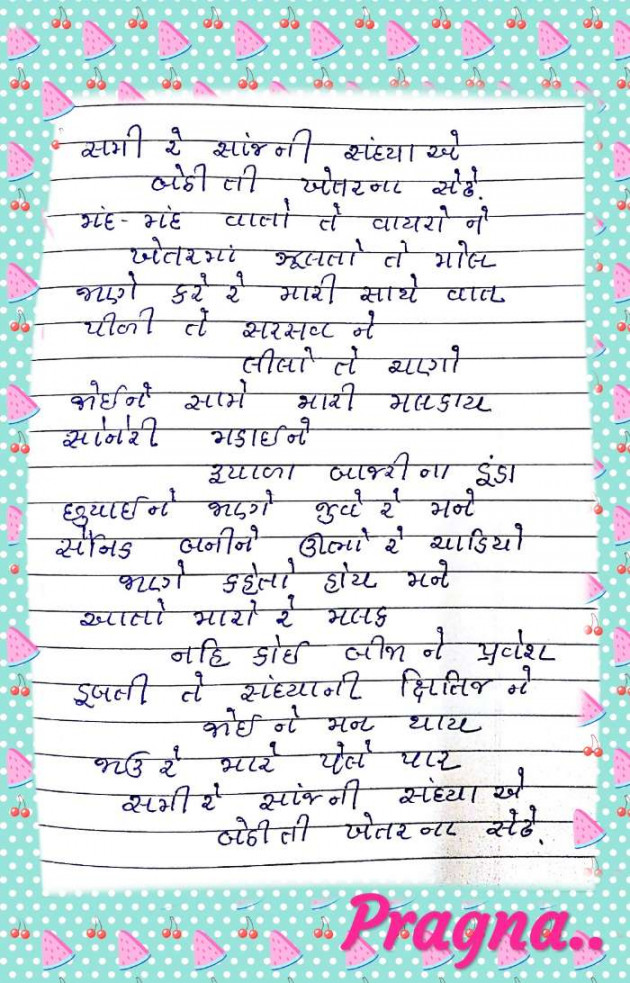 સમી રે સાંજની સંધ્યા એ
બેઠીતી ખેતરના સેઢે.
મંદ-મંદ વાતો તે વાયરો ને
ખેતરમાં ઝૂલતો તે મોલ
જાણે કરે રે મારી સાથે વાત
પીળી તે સરસવ ને
લીલો તે ચણો
જોઈને સામે મારી મલકાય
સોનેરી મકાઈને
રૂપાળા બાજરીના ડૂંડા
છુપાઈને જાણે જુવે રે મને
સૈનિક બનીને ઊભો રે ચાડિયો
જાણે કહેતો હોય મને
આતો મારો રે મલક
નહિ કોઈ બીજા ને પ્રવેશ
ડૂબતી તે સંધ્યાની ક્ષિતિજ ને
જોઈ ને મન થાય
જાઉ રે મારે પેલે પાર
સમી રે સાંજની સંધ્યા એ
બેઠીતી ખેતરના સેઢે.
Pragna..